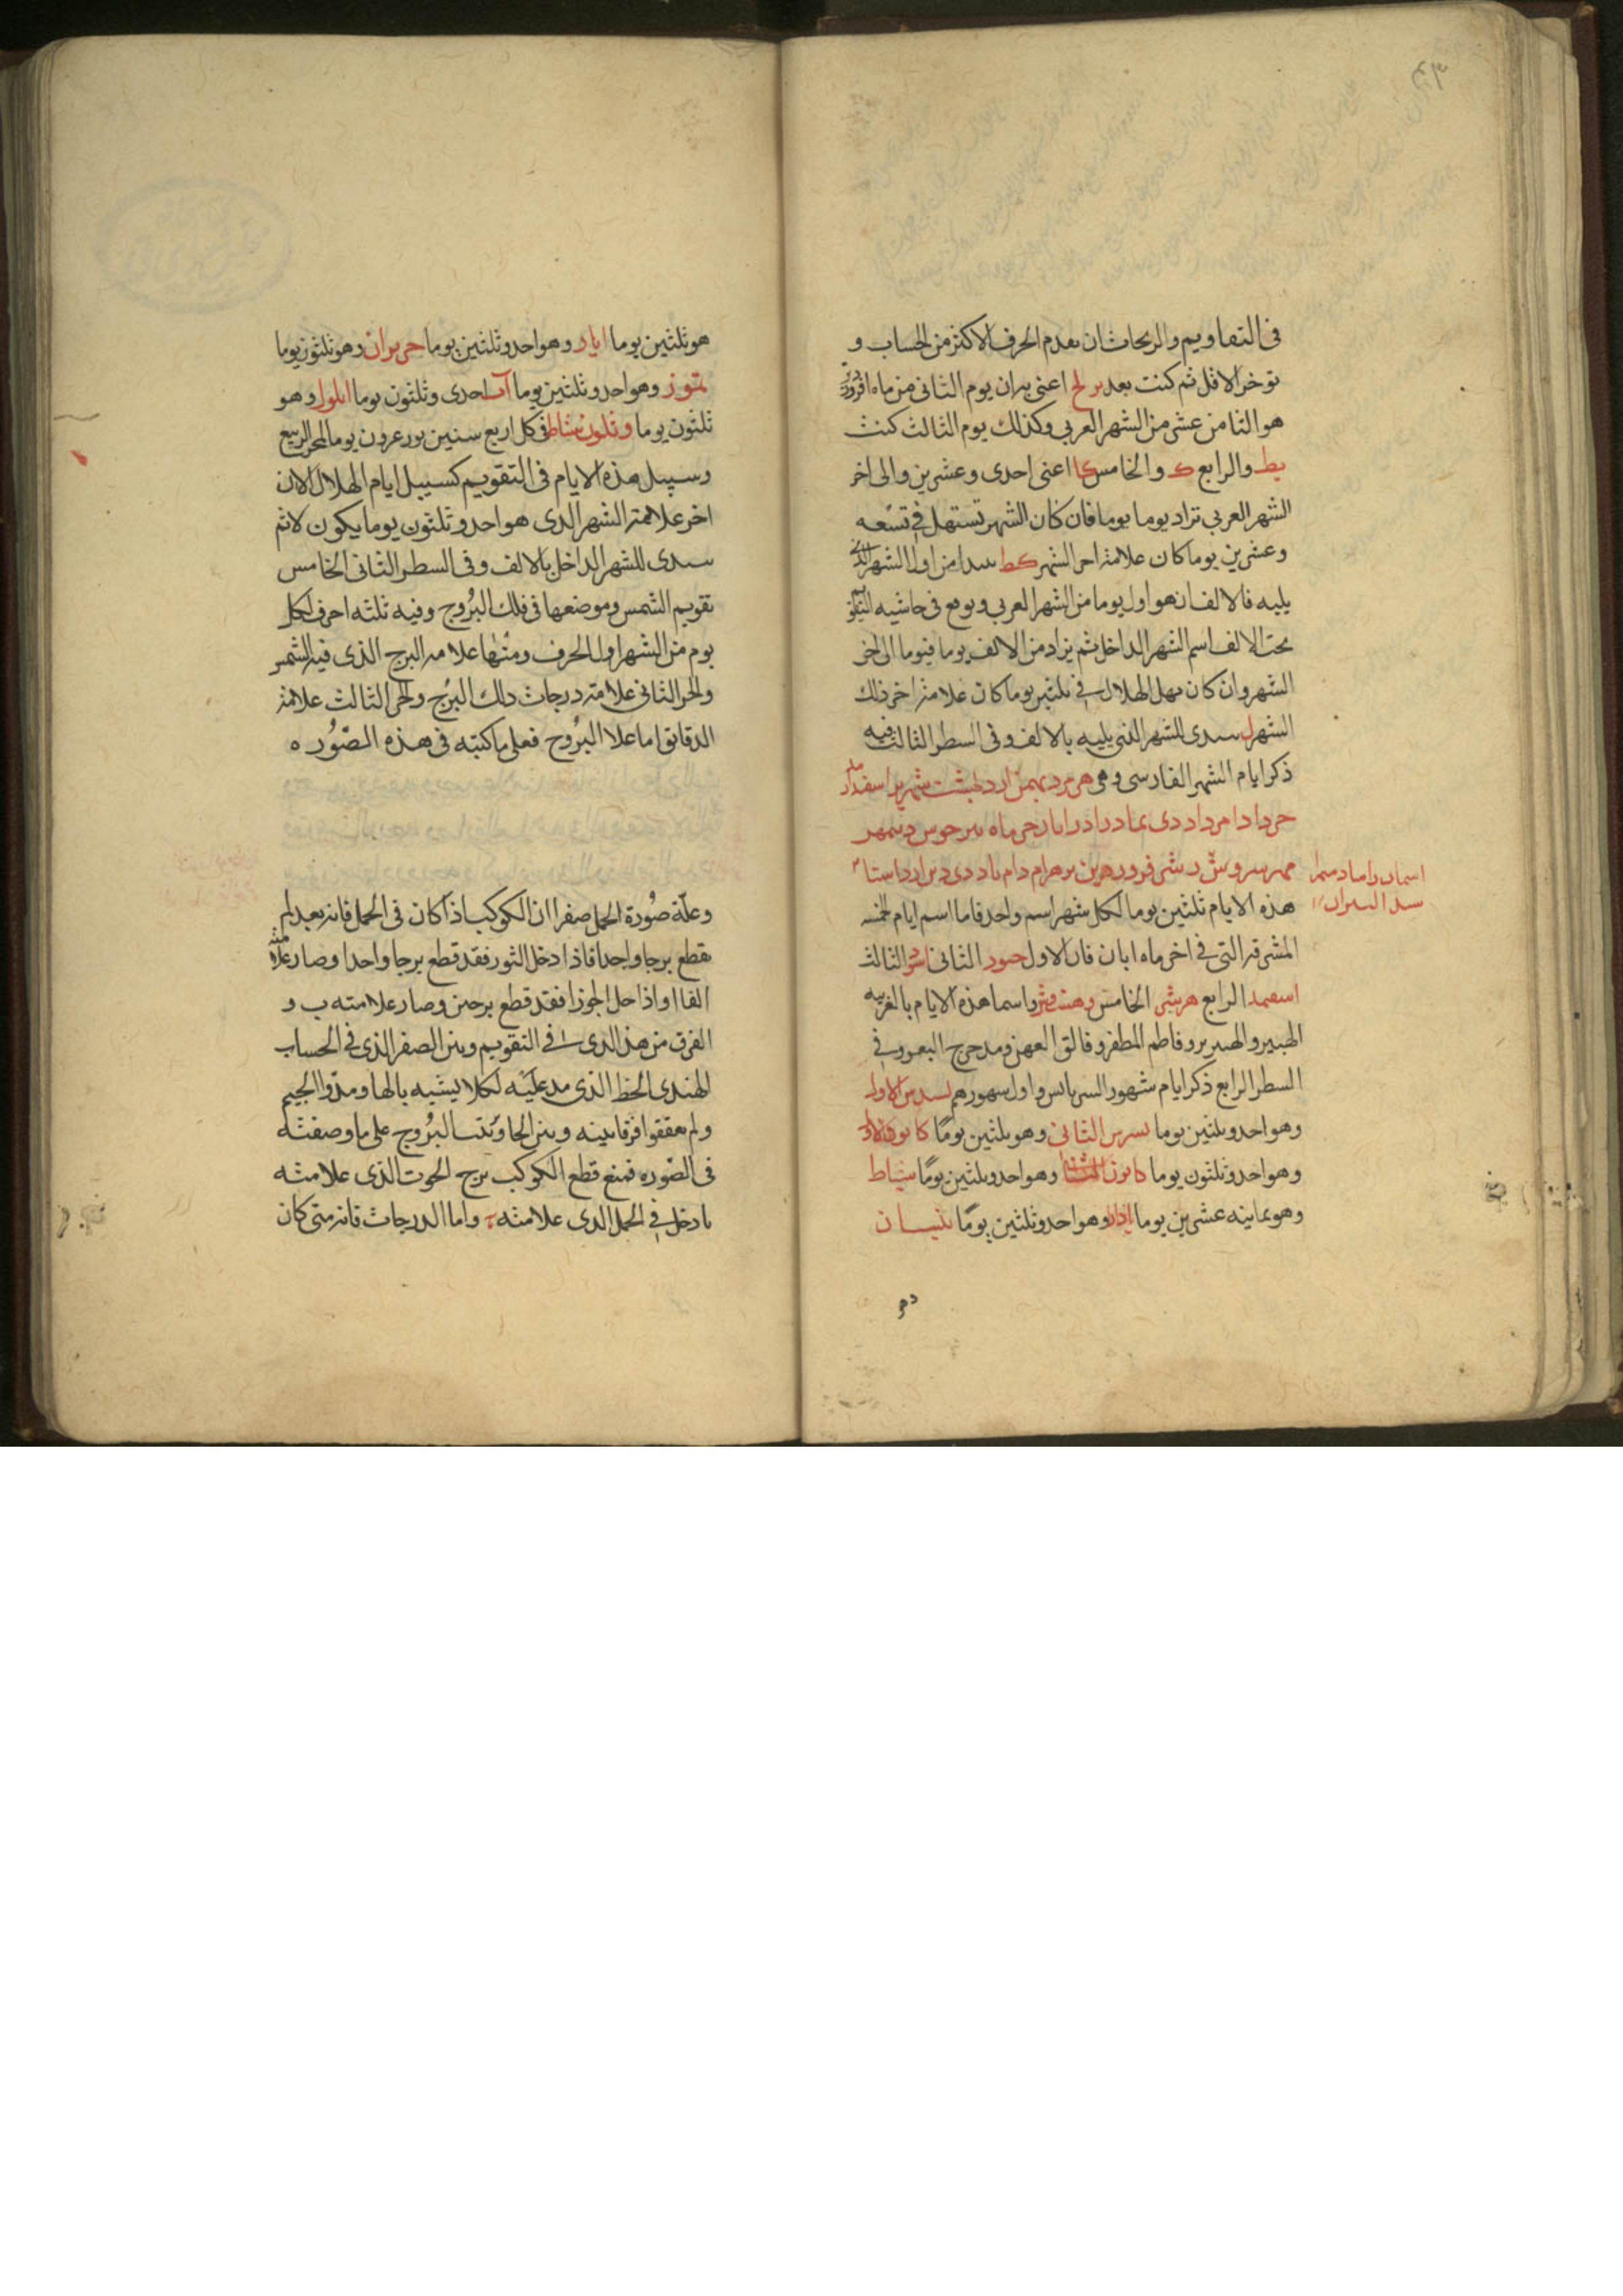 فى التقاويم والزيجات ان يقدم الحرف الاكثر من الحساب و
توخر الاقل ثم كنت بعد يز لح اعنى يزان يوم الثانى من ماه افرودين
هو الثامن عشر من الشهر العربى وكذلك يوم الثالث كنت
يط والرابع ك والخامس كا اعنى احدى وعشرين والى اخر
الشهر العربى تزاد يوما يوما فان كان الشهر تستهل فى تسعه
وعشرين يوما كان علامة اخر الشهر كط يبدا من اول الشهر الذى
يليه فالالف انه هو اول يوما من الشهر العربى ويوقع فى حاشيه التقويم
تحت الالف اسم الشهر الداخل ثم يزاد من الالف يوما فيوما الى اخر
الشهر وان كان يهل الهلال فى ثلثين يوما كان علامة اخر ذلك
الشهر ل يبتدى للشهر الذى يليه بالالف وفى السطر الثالث فيه
ذكر ايام الشهر الفارسى وهى هرمزد بهمن اردبهشت شهرير اسفندارمذ
خرداد امرداد دى بماذر اذر ابان خر ماه تير جوش ديبمهر
مهر سروش رشن فرورهين بهرام رام باد دى دين ارد استاد
اسمان رامياد
هذه الايام ثلثين يوما لكل شهر اسم واحد فاما اسم ايام خمسه
المشرقة التى فى اخر ماه ابان فان الاول الثانى الثالث
اسفمد الرابع الخامس واسما هذه الايام بالعربيه
الهنبر والهنزبر وفاطم المظفر وفالق العهن ومدحرج البعر وفى
السطر الرابع ذكر ايام شهور السريانيين واول شهورهم تسرين الاول
وهو احد وثلثين يوما تسرين الثانى وهو ثلثين يوما كانون الاول
وهو احد وثلثون يوما كانون وهو احد وثلثين يوما شباط
وهو ثمانيه عشرين يوما اذار وهو احد وثلثين يوما نيسان
هو ثلثين يوما ايار وهو احد وثلثين يوما حزيران وهو ثلثون يوما
تموز وهو احد وثلثين يوما آب احدى وثلثون يوما ايلول وهو
ثلثون يوما وتكون شباط فى كل اربع سنين
وسبيل هذه الايام فى التقويم كسبيل ايام الهلال الان
اخر علامة الشهر الذى هو احد وثلثون يوما يكون لا ثم
يبتدى للشهر الداخل بالالف وفى السطر الثانى الخامس
تقويم الشمس وموضعها فى فلك البُروج وفيه ثلثه احرف لكل
يوم من الشهر اول الحرف ومنها علامه البرج الذى فيه الشمس
والحرف الثانى علامة درجات ذلك البُرج والحرف الثالث علامة
الدقايق اما علا البرُوج فعلى ما كتبته فى هذه الصّوُره
وعلّة صُورة الحمل صفرا ان الكوكب اذا كان فى الحمل فانه بعد لم
يقطع برجا واحدا فاذا دخل الثور فقد قطع برجا واحدا وصار علامته
الفا واذا حل الجوزا فقد قطع برجين وصار علامته ب و
الفرق من هذ الذى فى التقويم وبين الصفر الذى فى الحساب
الهندى الخط الذى مد عليه لكلا يشبه بالها ومدّوا الجيم
ولم يعقفوا فرقا بينه وبين الحا وتكتب البُروج على ما وصفته
فى الصّوره فمتى قطع الكوكب برج الحوت الذى علامته
يا دخل فى الحمل الذى علامته واما الدرجات فانه متى كان